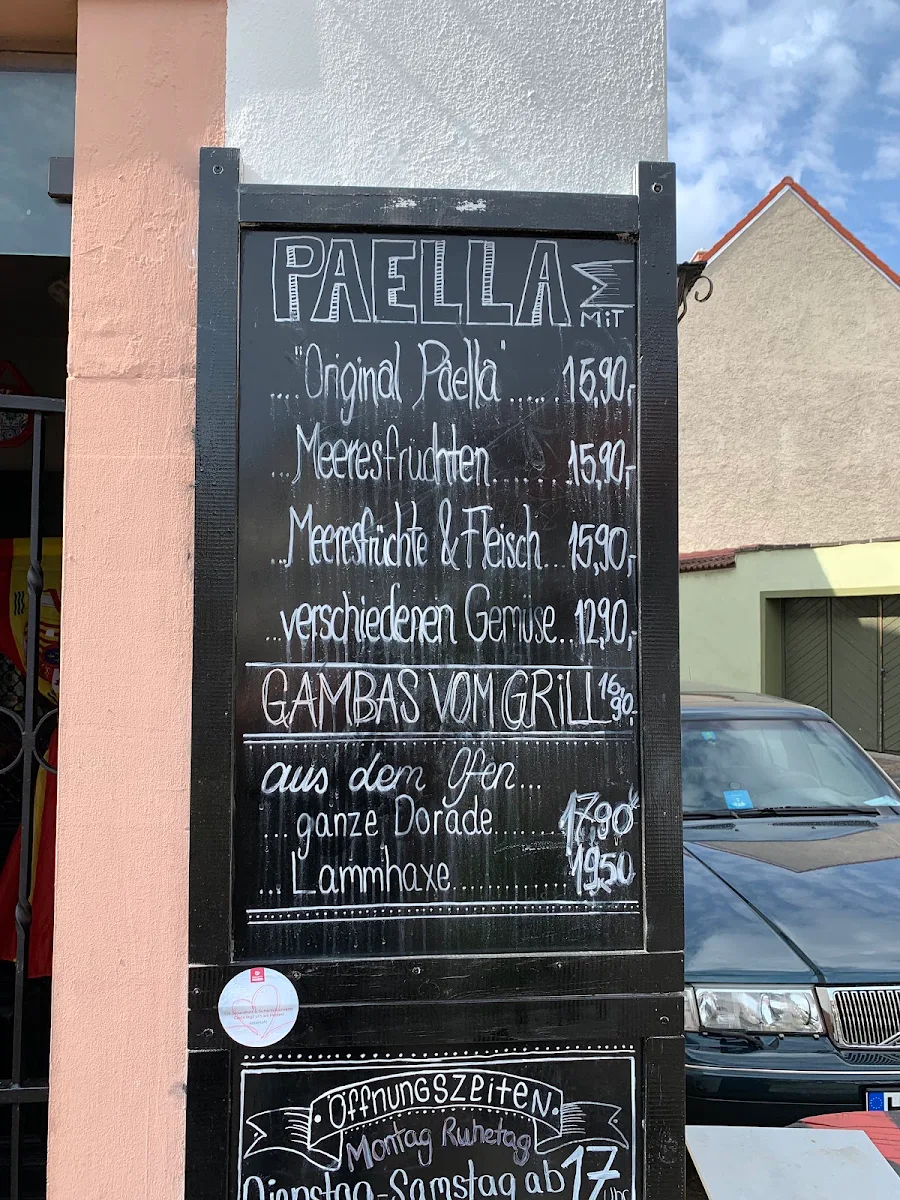 PAELLA
MiT
...."Original Paella"...... 15,90,-
...Meeresfrüchten....... 15,90,-
...Meeresfrüchte & Fleisch... 15,90,-
...verschiedenen Gemüse.. 12,90,-
GAMBAS VOM GRiLL 16,90,-
aus dem Ofen...
...ganze Dorade....... 17,90
...Lammhaxe............ 19,50
ÖffnungsZeiten
Montag Ruhetag
Dienstag-Samstag ab 17 Uhr